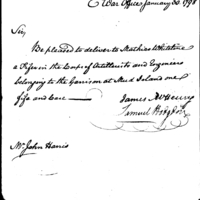 War Office January 30. 1798
Sir,
Be pleased to deliver to Mathias Whitstine
a Fifer in the Corps of Artillerists and Engineers
belonging to the Garrison at Mud Island one
fife and Case —
James McHenry
Samuel Hodgdon
Mr. John Harris